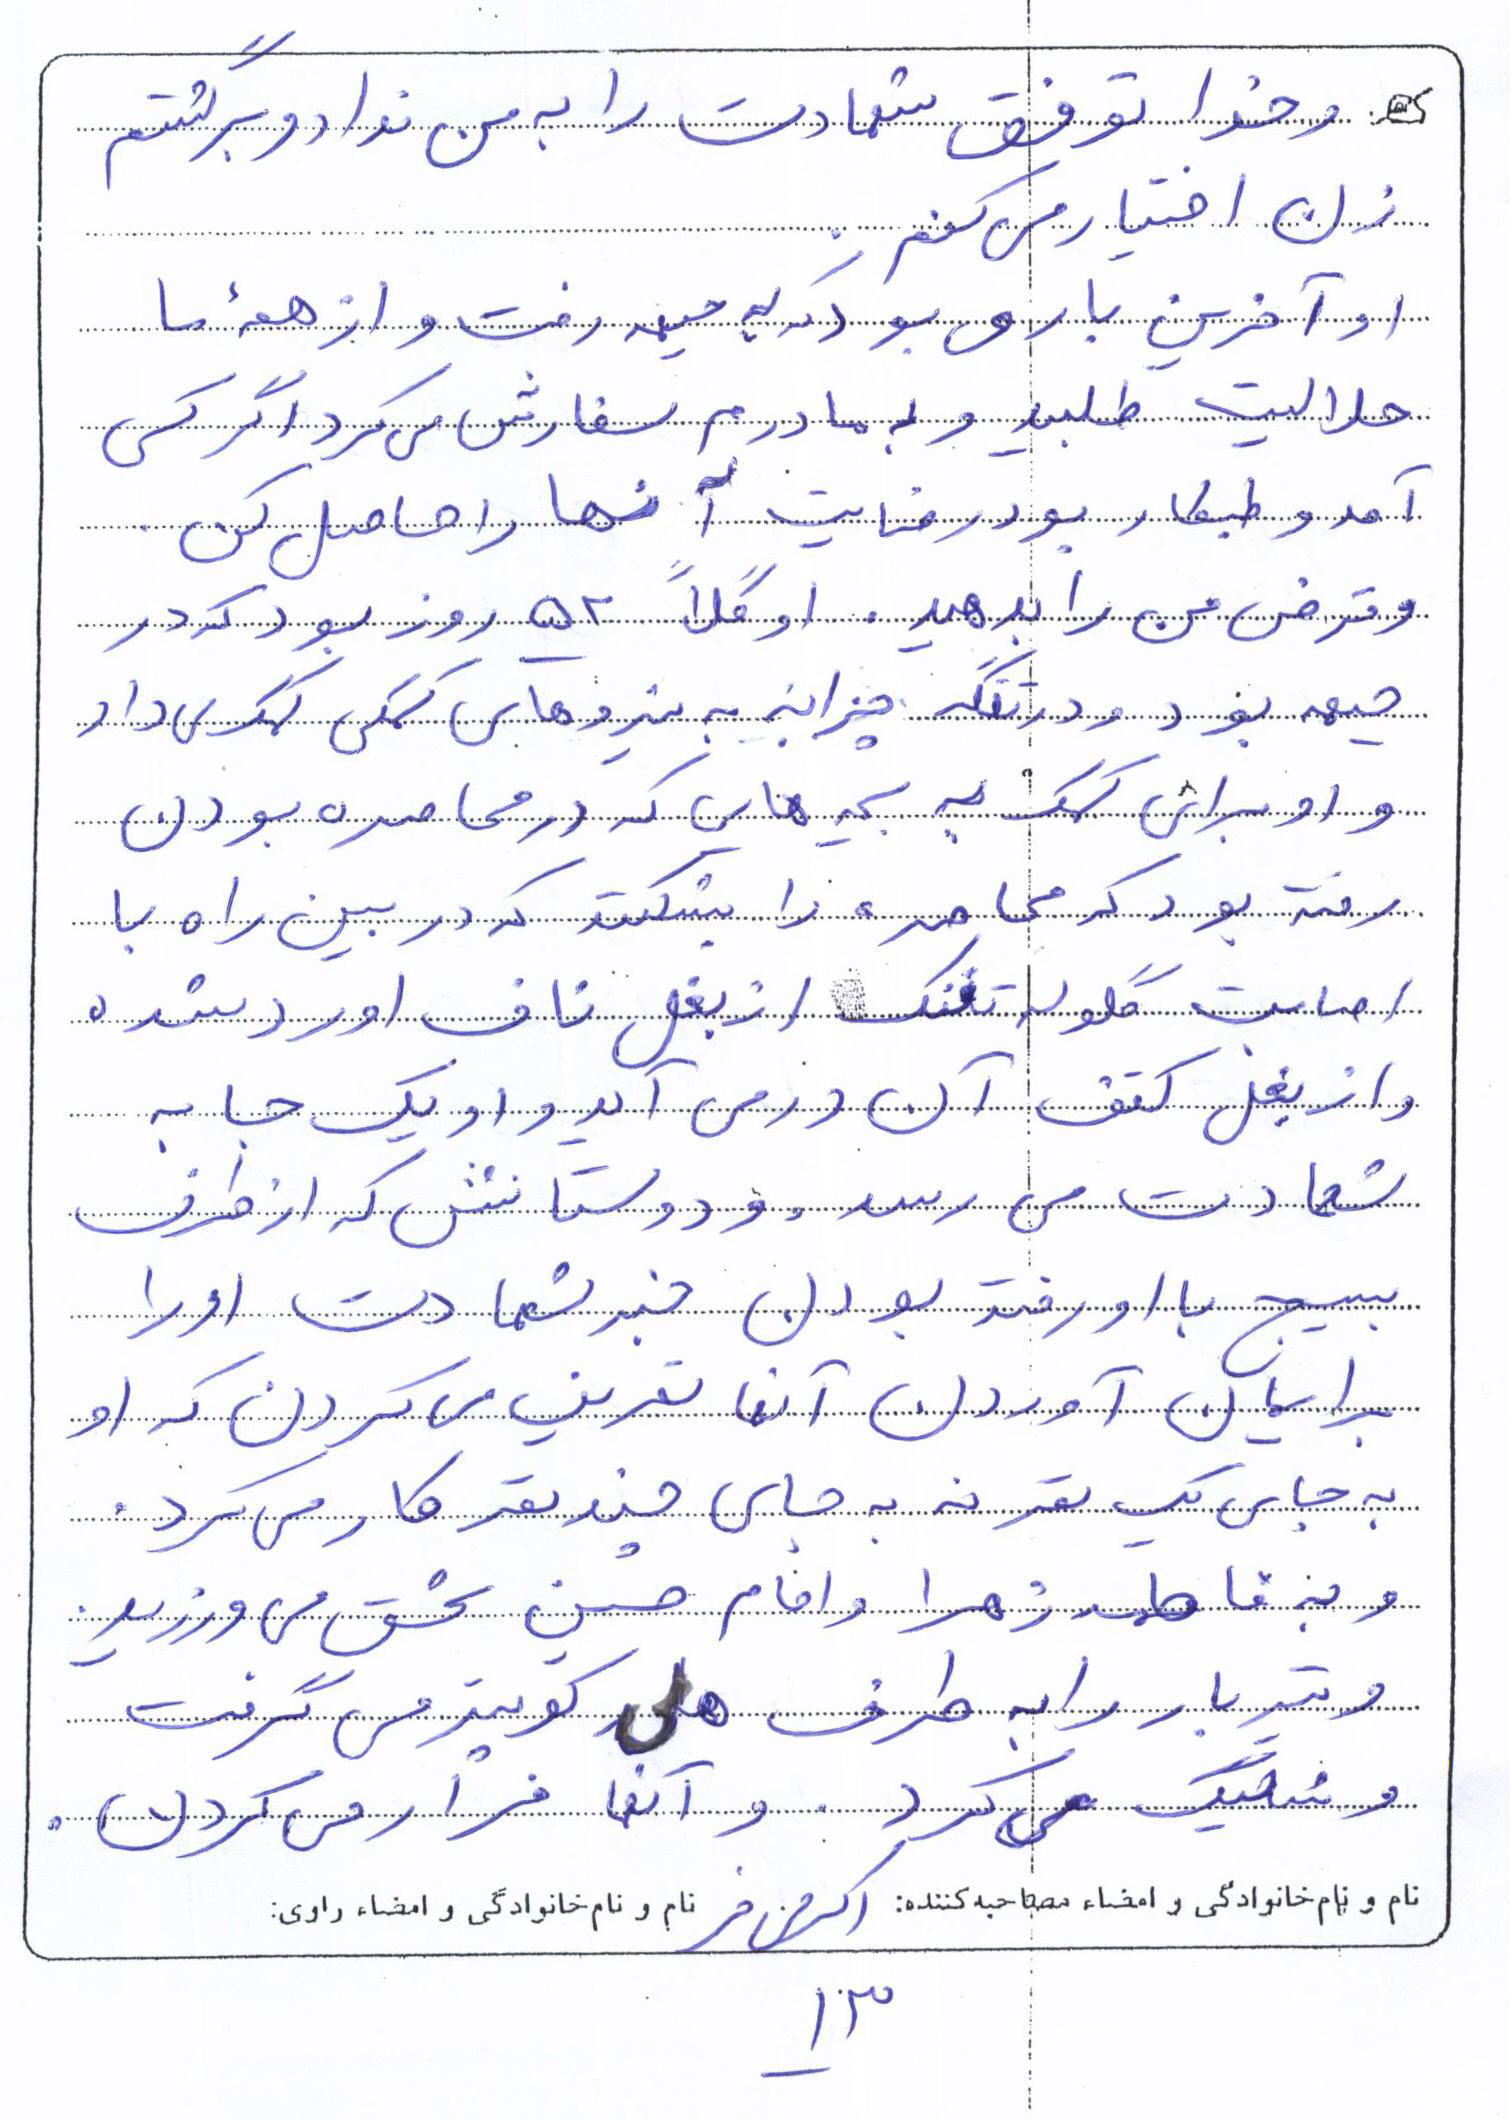 و خدا توفیق شهادت را به من نداد و برگشتم
زن اختیار می کنم.
او آخرین باری بود که به جبهه رفت و از همهٔ ما
حلالیت طلبید و به مادرم سفارش می کرد اگر کسی
آمد و طلبکار بود رضایت آنها را حاصل کن.
و قرض من را بدهید. او کلاً ۵۲ روز بود که در
جبهه بود و در تنگه چزابه به نیروهای کمکی کمک می داد
و او برای کمک به بچه هایی که در محاصره بودن
رفته بود که محاصره را بشکند که در بین راه با
اصابت گلوله تفنگ از بغل ناف او رد شده
و از بغل کتف آن در می آید و او یک جا به
شهادت می رسد. و دوستانش که از طرف
بسیج با او رفته بودن خبر شهادت او را
برایمان آوردن آنها تعریف می کردن که او
به جای یک نفر نه به جای چند نفر کار می کرد.
و به فاطمه زهرا و امام حسین عشق می ورزید.
و تیربار را به طرف هلی کوپتر می گرفت
و شلیک می کرد. و آنها فرار می کردن.
نام و نام خانوادگی و امضاء مصاحبه کننده: نام و نام خانوادگی و امضاء راوی:
۱۳